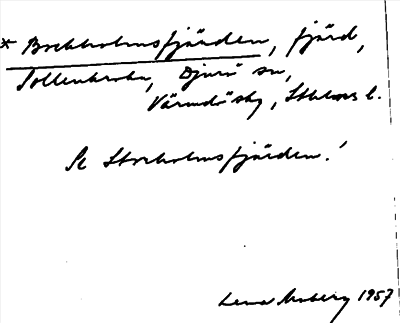 * Bockholmsfjärden, fjärd,
Sollenkroka, Djurö sn,
Värmdö skg, Sthlms l.
Se Storholmsfjärden!
Lena Moberg 1957